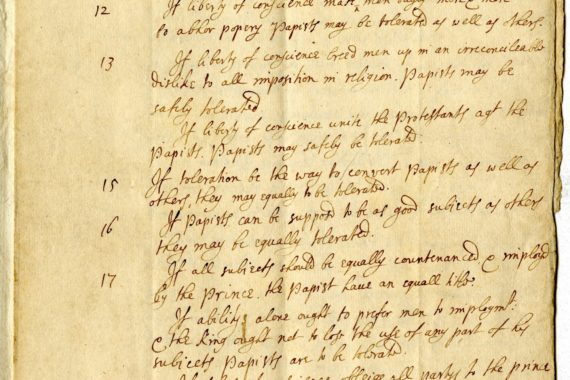 12 If liberty of conscience make men ought more & more
to abhor popery Papists may be tolerated as well as others.
13 If liberty of conscience breed men up in an irreconcileable
dislike to all imposition in religion. Papists may be
safely tolerated
If liberty of conscience unite the Protestants agt the
Papists. Papists may safely be tolerated.
15 If toleration be the way to convert Papists as well as
others, they may equally to be tolerated.
16 If Papists can be supposd to be as good subjects as others
they may be equally tolerated.
17 If all subjects should be equally countenanced & imployd
by the Prince. the Papist have an equall title.
If abilitys alone ought to prefer men to imploymt:
& the King ought not to loss the use of any part of his
subjects Papists are to be tolerated.
obleige all partys to the prince